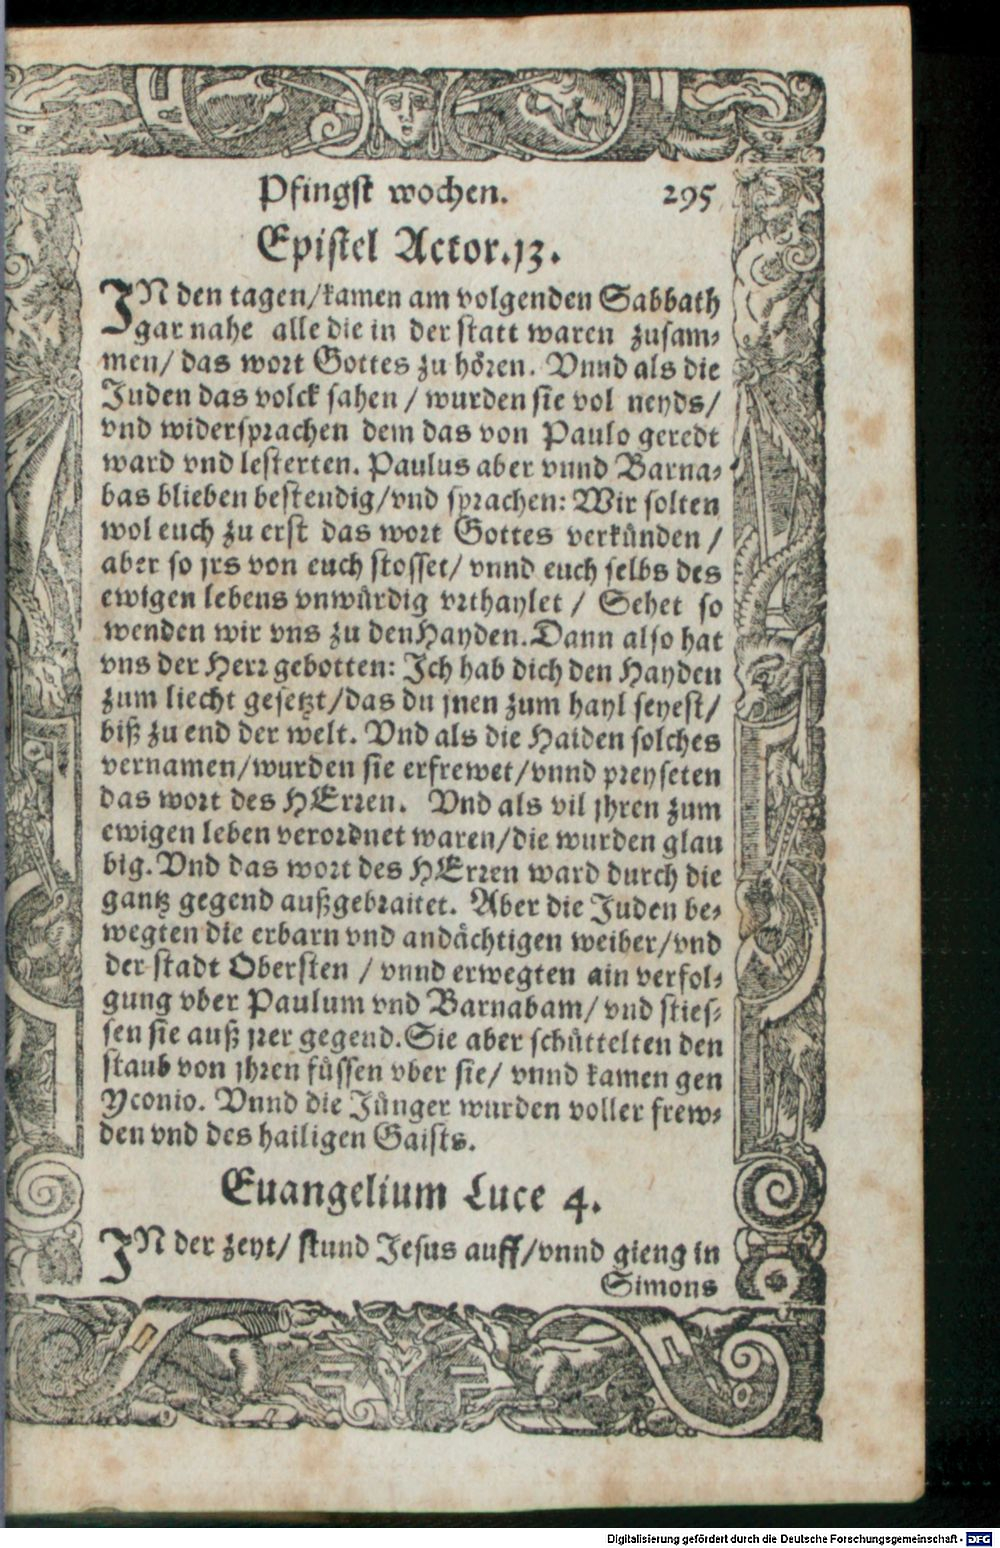 Pfingst wochen. 295
Epistel Actor.13.
IN den tagen/kamen am volgenden Sabbath
gar nahe alle die in der statt waren zusam⸗
men/ das wort Gottes zu hören. Vnnd als die
Juden das volck sahen / wurden sie vol neyds/
vnd widersprachen dem das von Paulo geredt
ward vnd lesterten. Paulus aber vnnd Barna⸗
bas blieben bestendig/vnd sprachen: Wir solten
wol euch zu erst das wort Gottes verkünden /
aber so jrs von euch stosset/ vnnd euch selbs des
ewigen lebens vnwürdig vrthaylet / Sehet so
wenden wir vns zu den Hayden. Dann also hat
vns der Herr gebotten: Ich hab dich den Hayden
zum liecht gesetzt/das du jnen zum hayl seyest/
biß zu end der welt. Vnd als die Haiden solches
vernamen/wurden sie erfrewet/vnnd preyseten
das wort des HErren. Vnd als vil jhren zum
ewigen leben verordnet waren/die wurden glau
big. Vnd das wort des HErren ward durch die
gantz gegend außgebraitet. Aber die Juden be⸗
wegten die erbarn vnd andächtigen weiber/vnd
der stadt Obersten / vnnd erwegten ain verfol⸗
gung vber Paulum vnd Barnabam/ vnd sties⸗
sen sie auß jrer gegend. Sie aber schüttelten den
staub von jhren füssen vber sie/ vnnd kamen gen
Yconio. Vnnd die Jünger wurden voller frew⸗
den vnd des hailigen Gaists.
Euangelium Luce 4.
IN der zeyt/ stund Jesus auff/vnnd gieng in
Simons
Digitalisierung gefördert durch die Deutsche Forschungsgemeinschaft - DFG